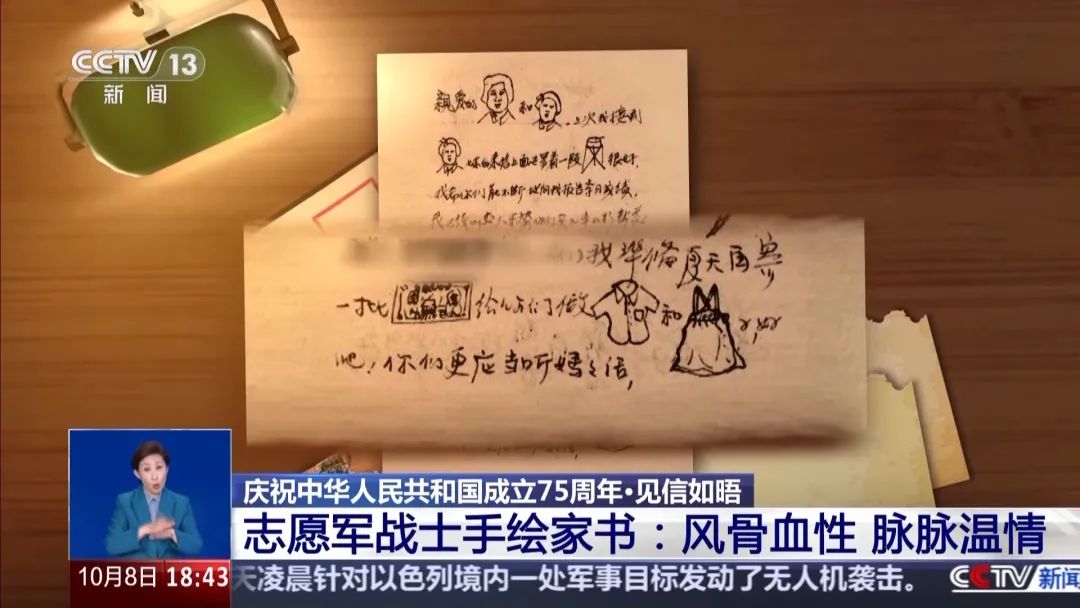 CCTV 13
新闻
亲爱的 和 。上次我接到
上面 着一段 很好,
我 你们能不断地向我报告学习成绩,
我准备夏天再寄
一批 给你们做 和 ,好
吧!你们更应当听妈妈话,
庆祝中华人民共和国成立75周年·见信如晤
志愿军战士手绘家书:风骨血性 脉脉温情
10月8日 18:43
天凌晨针对以色列境内一处军事目标发动了无人机袭击。
CCTV 新闻